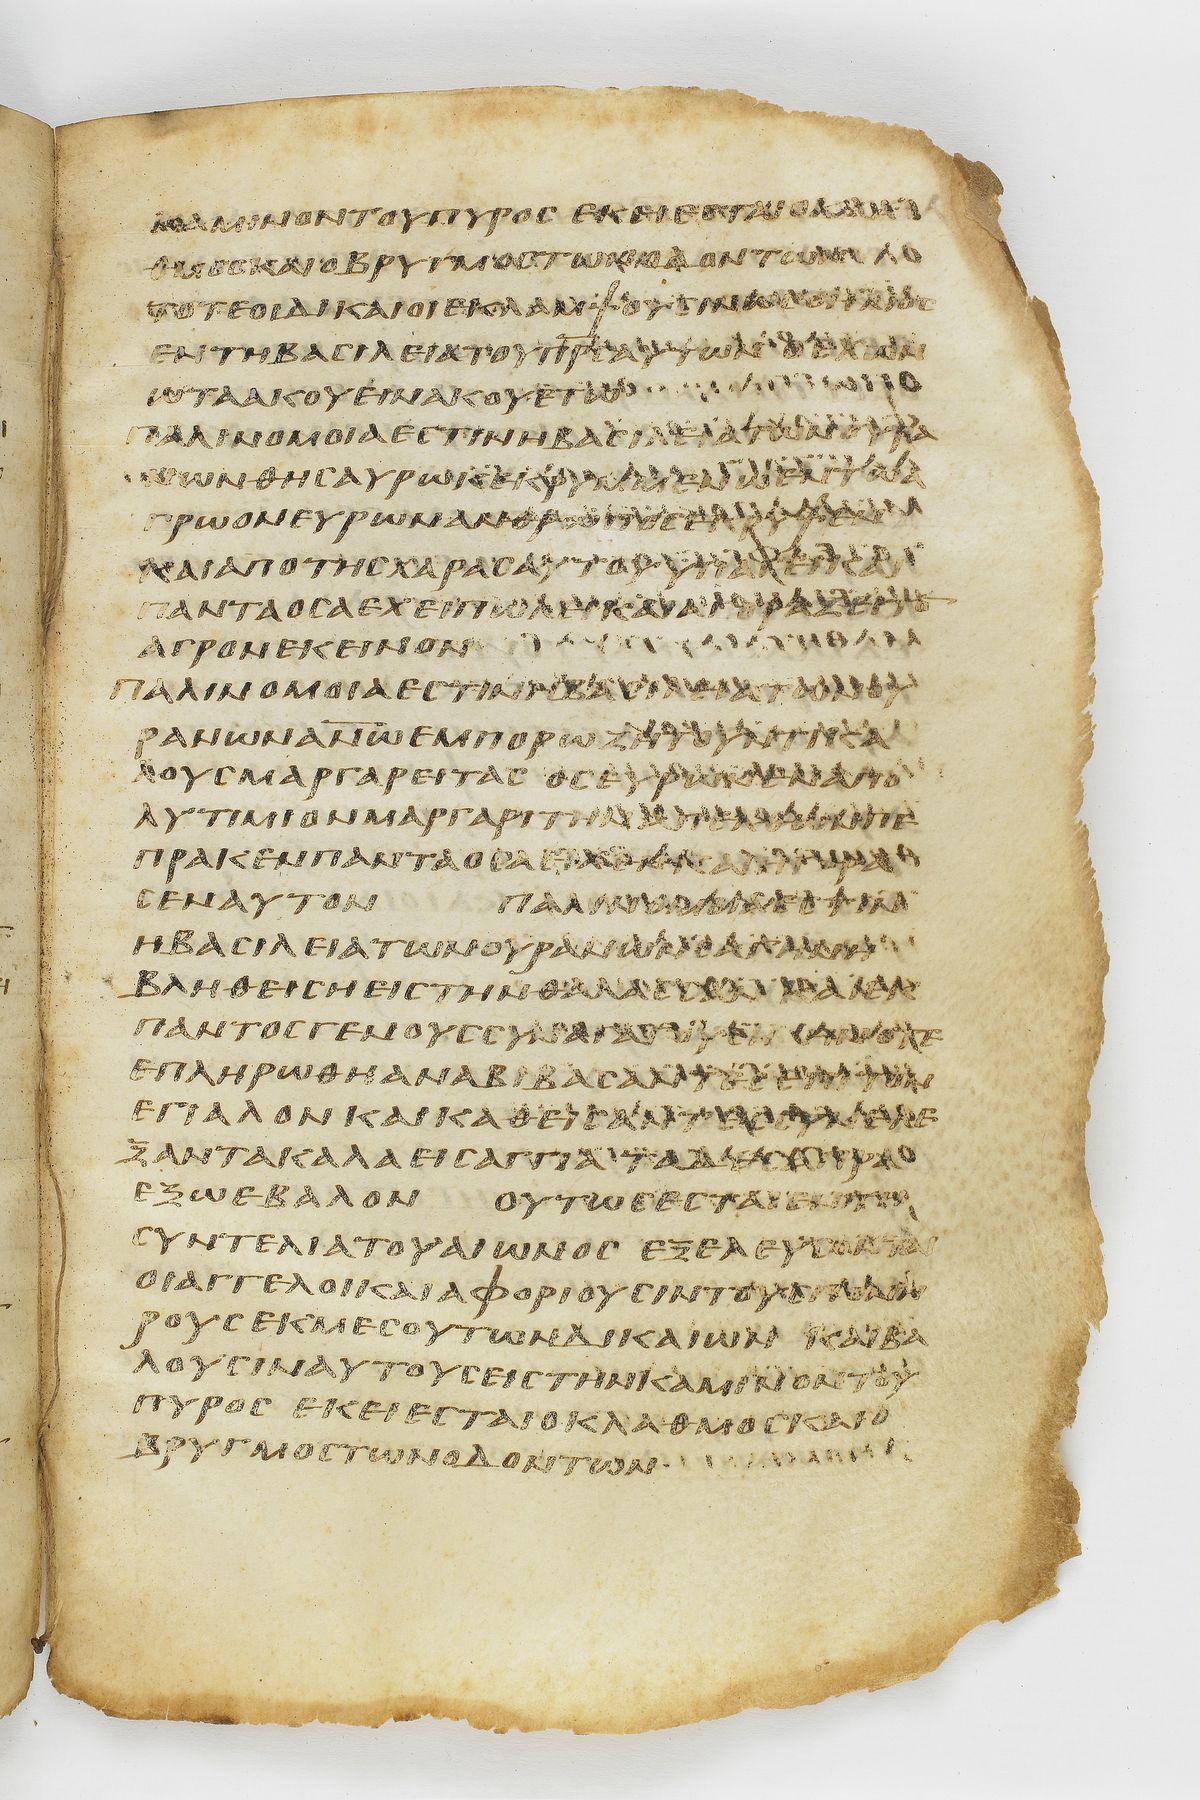 ΚΑΜΙΝΟΝΤΟΥΠΥΡΟΣ ΕΚΕΙΕΣΤΑΙΟΚΛΑΥ
ΘΜΟΣΚΑΙΟΒΡΥΓΜΟΣΤΩΝΟΔΟΝΤΩΝ
ΤΟΤΕΟΙΔΙΚΑΙΟΙΕΚΛΑΜΨΟΥΣΙΝ
ΕΝΤΗΒΑΣΙΛΕΙΑΤΟΥΠΡΣΑΥΤΩΝ ΟΕΧΩΝ
ΩΤΑΑΚΟΥΕΙΝΑΚΟΥΕΤΩ
ΠΑΛΙΝΟΜΟΙΑΕΣΤΙΝΗΒΑΣΙΛΕΙΑΤΩΝΟΥΡΑ
ΝΩΝΘΗΣΑΥΡΩΚΕΚΡΥΜΜΕΝΩΕΝ
ΓΡΩΟΝΕΥΡΩΝΑΝΟΣ
ΚΑΙΑΠΟΤΗΣΧΑΡΑΣΑΥΤΟΥΥΠΑΓΕΙΚΑΙ
ΠΑΝΤΑΟΣΑΕΧΕΙΠΩΛΕΙΚΑΙΑΓΟΡΑΖΕΙ
ΑΓΡΟΝΕΚΕΙΝΟΝ
ΠΑΛΙΝΟΜΟΙΑΕΣΤΙΝΗΒΑΣΙΛΕΙΑΤΩΝΟΥ
ΡΑΝΩΝΑΝΩΕΜΠΟΡΩΖΗΤΟΥΝΤΙΚΑ
ΛΟΥΣΜΑΡΓΑΡΕΙΤΑΣ ΟΣΕΥΡΩΝΕΝΑΠΟ
ΛΥΤΙΜΙΟΝΜΑΡΓΑΡΙΤΗΝ
ΠΡΑΚΕΝΠΑΝΤΑΟΣΑΕΙΧΕΝΚΑΙΗΓΟΡΑ
ΣΕΝΑΥΤΟΝ ΠΑΛΙΝΟΜΟΙΑΕΣΤΙΝ
ΗΒΑΣΙΛΕΙΑΤΩΝΟΥΡΑΝΩΝΣΑΓΗΝΗ
ΒΛΗΘΕΙΣΗΕΙΣΤΗΝΘΑΛΑΣΣΑΝΚΑΙΕΚ
ΠΑΝΤΟΣΓΕΝΟΥΣΣΥΝΑΓΑΓΟΥΣΗ ΗΝΟΤΕ
ΕΠΛΗΡΩΘΗΑΝΑΒΙΒΑΣΑΝΤΕΣΕΠΙΤΟΝ
ΕΓΙΑΛΟΝΚΑΙΚΑΘΕΙΣΑΝΤΕΣΣΥΝΕΛΕ
ΞΑΝΤΑΚΑΛΑΕΙΣΑΓΓΙΑ ΤΑΔΕΣΑΠΡΑ
ΕΞΩΕΒΑΛΟΝ ΟΥΤΩΣΕΣΤΑΙΕΝΤΗ
ΣΥΝΤΕΛΙΑΤΟΥΑΙΩΝΟΣ ΕΞΕΛΕΥΣΟΝΤΑΙ
ΟΙΑΓΓΕΛΟΙΚΑΙΑΦΟΡΙΟΥΣΙΝΤΟΥΣΠΟΝΗ
ΡΟΥΣΕΚΜΕΣΟΥΤΩΝΔΙΚΑΙΩΝ ΚΑΙΒΑ
ΛΟΥΣΙΝΑΥΤΟΥΣΕΙΣΤΗΝΚΑΜΙΝΟΝΤΟΥ
ΠΥΡΟΣ ΕΚΕΙΕΣΤΑΙΟΚΛΑΘΜΟΣΚΑΙΟ
ΒΡΥΓΜΟΣΤΩΝΟΔΟΝΤΩΝ